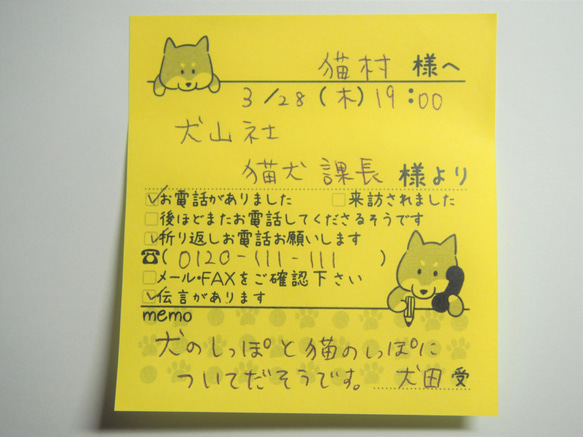 猫村 様へ
3/28(木)19:00
犬山社
猫犬 課長 様より
お電話がありました 来訪されました
後ほどまたお電話してくださるそうです
折り返しお電話お願いします
☎(0120-111-111)
メール・FAXをご確認下さい
伝言があります
memo
犬のしっぽと猫のしっぽに
ついてだそうです。 犬田 受